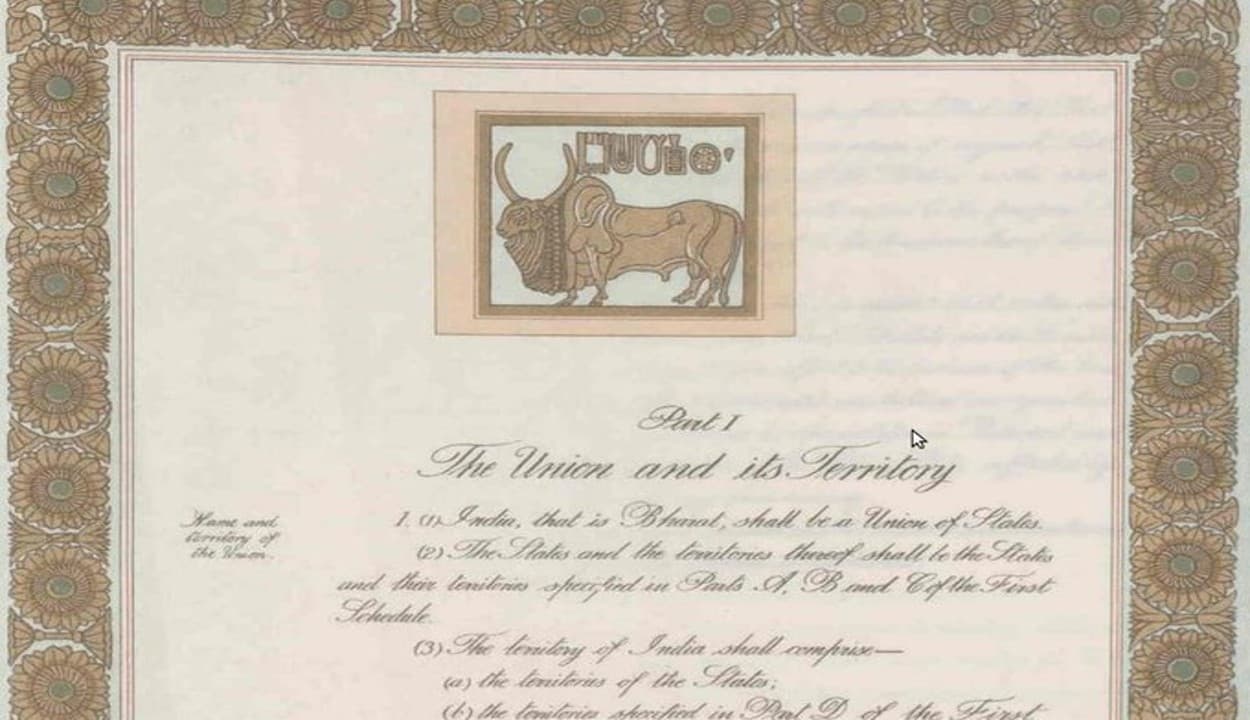 Part I
The Union and its Territory
Name and
territory of
the Union.
1. (1) India, that is Bharat, shall be a Union of States.
(2) The States and the territories thereof shall be the States
and their territories specified in Parts A, B and C of the First
Schedule.
(3) The territory of India shall comprise—
(a) the territories of the States;
(b) the territories specified in Part D of the First